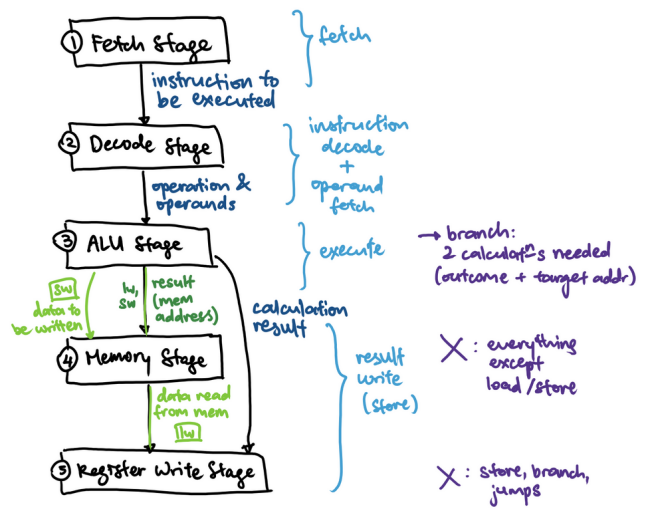 ① Fetch Stage
fetch
instruction to
be executed
② Decode Stage
instruction
decode
+
operand
fetch
operation &
operands
③ ALU Stage
execute
→ branch:
2 calculatⁿs needed
(outcome + target addr)
sw
data to
be written
lw,
sw
result
(mem
address)
calculation
result
④ Memory Stage
result
write
(store)
X : everything
except
load/store
data read
from mem
lw
⑤ Register Write Stage
X : store, branch,
jumps